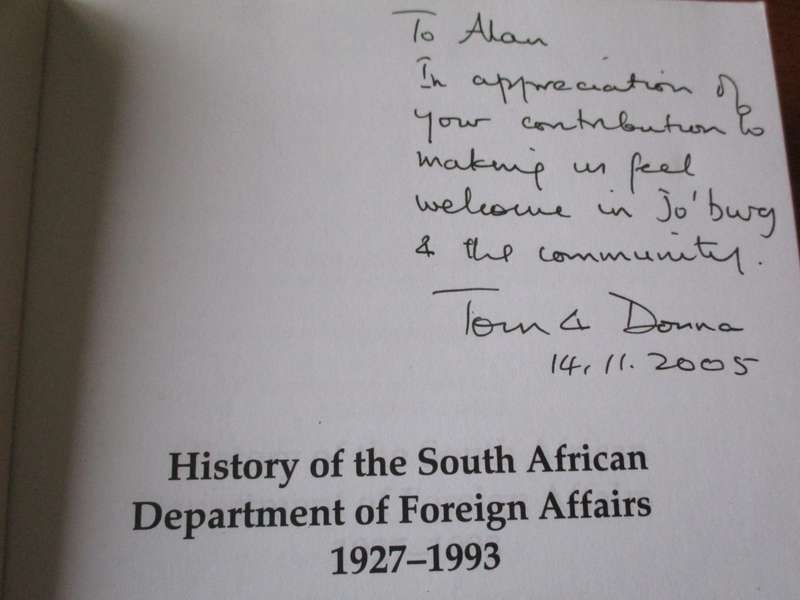 To Alan
In appreciation of
your contribution to
making us feel
welcome in Jo'burg
& the community.
Tom & Donna
14.11.2005
History of the South African
Department of Foreign Affairs
1927–1993